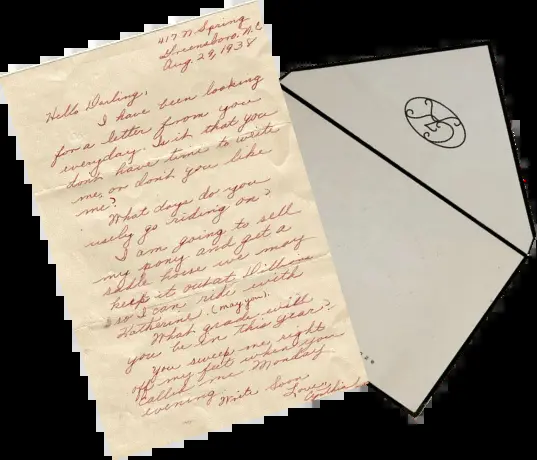 417 N. Spring
Greensboro, N.C.
Aug. 29, 1938
Hello Darling,
I have been looking
for a letter from you
everyday. Is it that you
don't have time to write
me, or don't you like
me?
What days do you
usely go riding on?
I am going to sell
my pony and get a
sadle horse we may
keep it out at
so I can ride with
Katherine. (may you).
What grade will
you be in this year?
You sweep me right
off my feet when you
called me Monday
evening.
Write Soon
Love